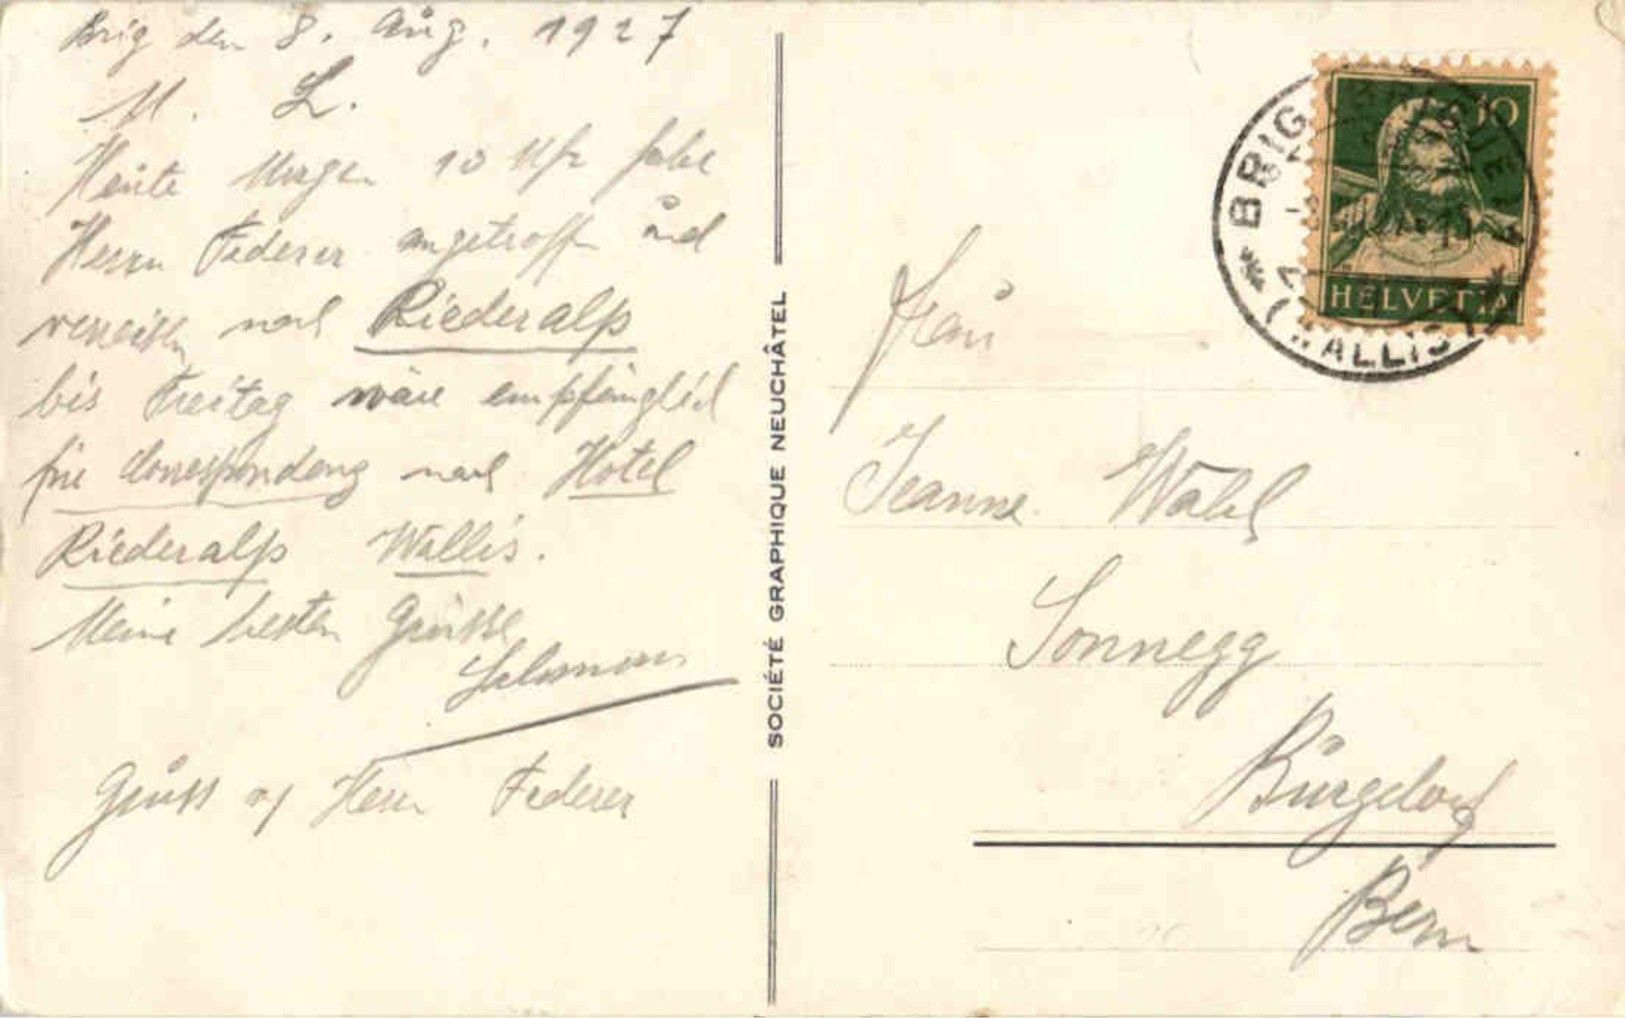 Brig den 8. Aug. 1927
M. L.
Heute Morgen 10 Uhr habe
Herrn Federer angetroffen und
verreisen nach Riederalp
bis Freitag wäre empfänglich
für Correspondenz nach Hotel
Riederalp Wallis.
Meine besten Grüsse
Gruss v/ Herr Federer
SOCIÉTÉ GRAPHIQUE NEUCHÂTEL
BRIG
(WALLIS)
10
HELVETIA
Frau
Jeanne Wahl
Sonnegg
Burgdorf
Bern